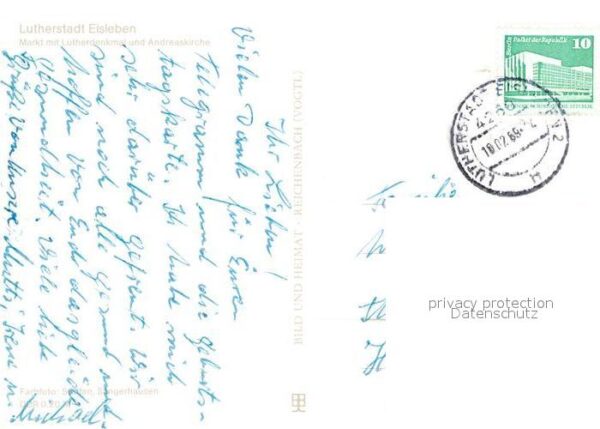 Lutherstadt Eisleben
Markt mit Lutherdenkmal und Andreaskirche
Ihr Lieben!
Vielen Dank für Euren
Telegramm und die Geburts-
tagskarte. Ich habe mich
sehr darüber gefreut. Wir
sind noch alle gesund u.
hoffen von Euch dasgleiche
Gesundheit. Viele liebe
Grüße von unser Mutti, Irene u.
Michael
Farbfoto: Sangerhausen
BILD UND HEIMAT · REICHENBACH (VOGTL)
Berlin Palast der Republik
10
LUTHERSTADT EISLEBEN 2
18.02.86
Familie
privacy protection
Datenschutz